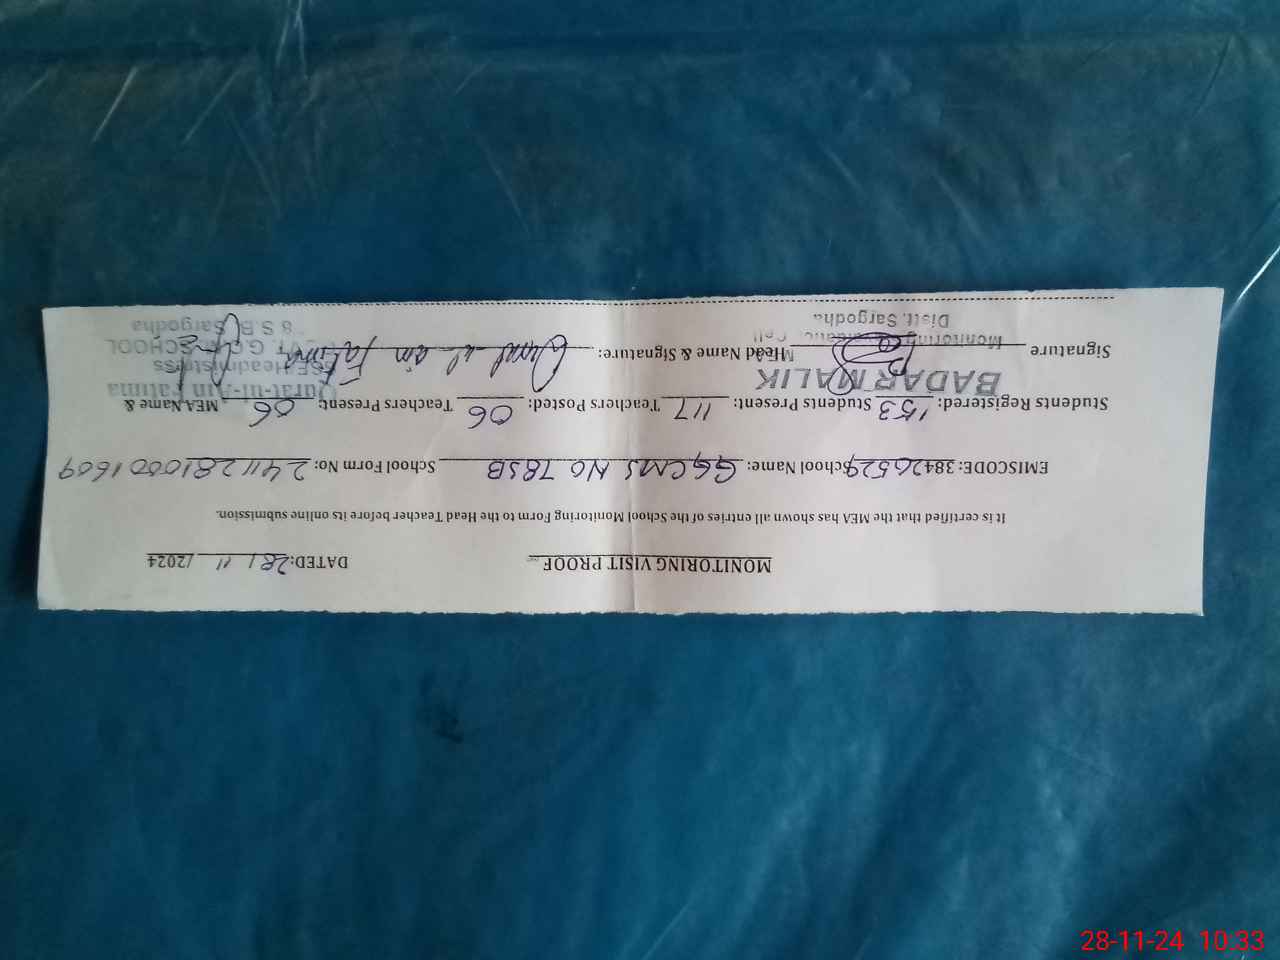 MONITORING VISIT PROOF DATED: 28/11/2024
It is certified that the MEA has shown all entries of the School Monitoring Form to the Head Teacher before its online submission.
EMISCODE: 38426529 School Name: GGCMS No 78SB School Form No: 24112810001609
Students Registered: 153 Students Present: 117 Teachers Posted: 06 Teachers Present: 06 MEA Name &
BADAR MALIK
Qurat-ul-Ain Fatima
Headmistress
Signature Head Name & Signature: Qurat ul ain Fatima
Monitoring Cell
SCHOOL
Distt. Sargodha
78 S.B Sargodha
28-11-24 10:33